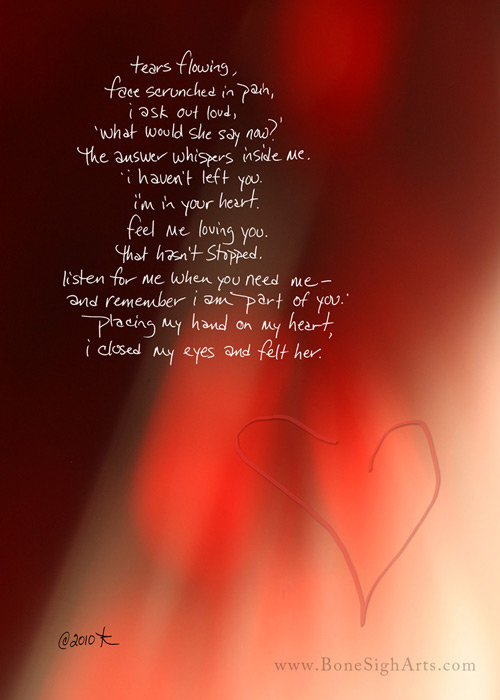 tears flowing,
face scrunched in pain,
i ask out loud,
'what would she say now?'
the answer whispers inside me.
'i haven't left you.
i'm in your heart.
feel me loving you.
that hasn't stopped.
listen for me when you need me –
and remember i am part of you.'
placing my hand on my heart,
i closed my eyes and felt her.
©2010
www.BoneSighArts.com